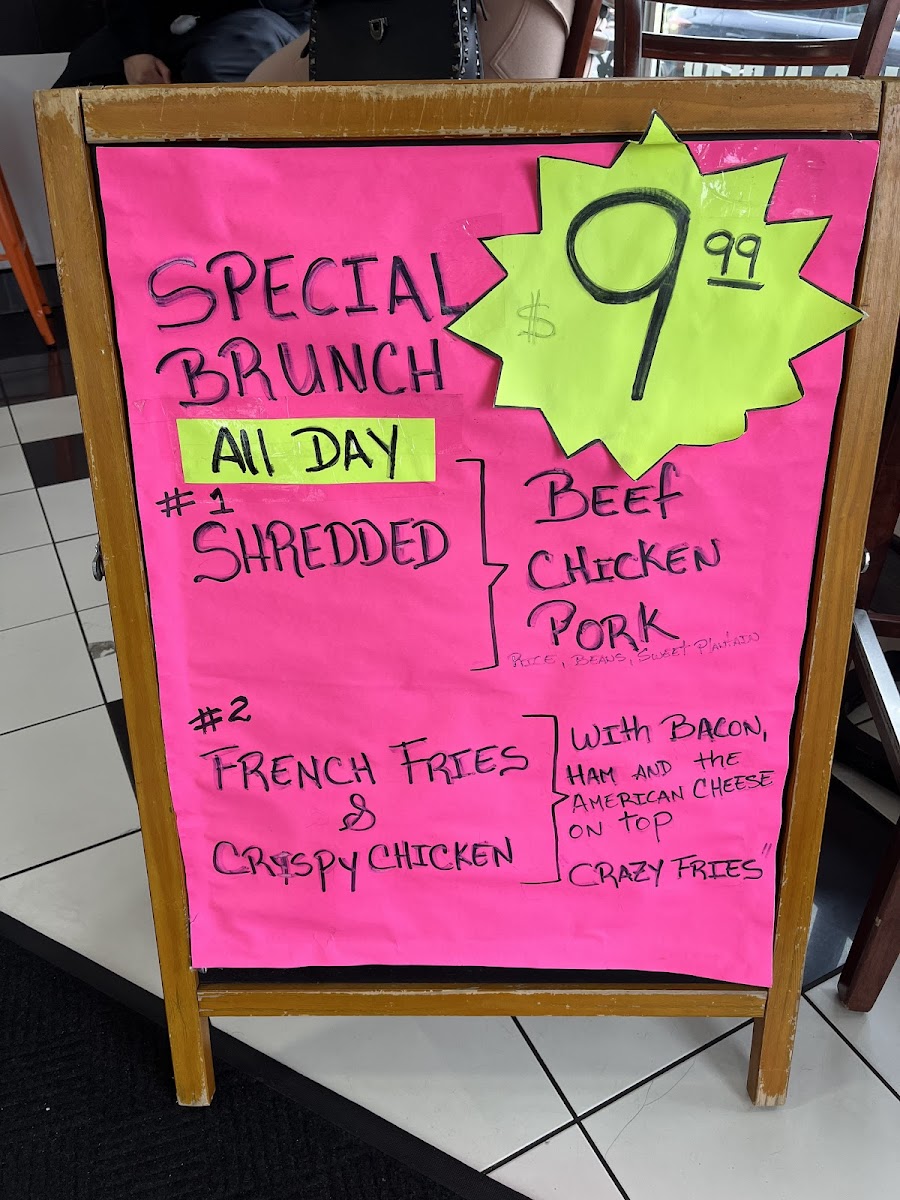 SPECIAL
BRUNCH
All DAY
$9.99
#1
SHREDDED
BEEF
CHICKEN
PORK
RICE, BEANS, SWEET PLANTAIN
#2
FRENCH FRIES
&
CRISPY CHICKEN
WITH BACON,
HAM AND the
AMERICAN CHEESE
ON TOP
CRAZY FRIES"